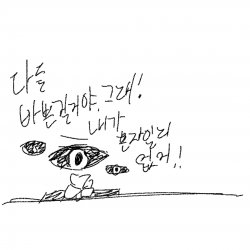 다들
바쁜걸거야. 그래!
내가
혼자일리
없어!!